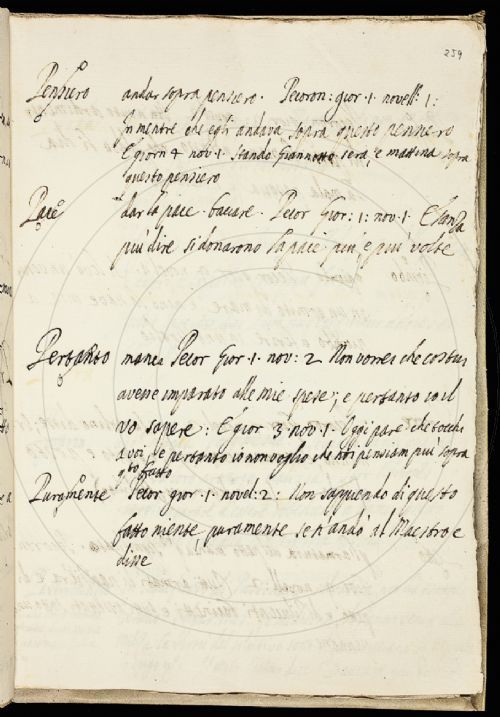 259
Pensiero andar sopra pensiero. Pecoron: gior. 1. novell. 1:
In mentre che egli andava sopra questo pensiero
E giorn 4 nov. 1. Stando Giannotto sera, e mattina sopra
questo pensiero
Pace dar la pace. baciare. Pecor Gior: 1: nov. 1. E senza
più dire si donarono la pace più, e più volte
Pertanto Pecor Gior. 1. nov: 2 Non vorrei che costui
avesse imparato alle mie spese; e pertanto io il
vo sapere: E gior 3 nov. 1. Oggi pare che tocchi
a voi, e pertanto io non voglio che noi pensiam più sopra
qto fatto
Puramente Pecor gior. 1. novel: 2: Non sappiendo di questo
fatto niente, puramente se n'andò al Maestro e
disse